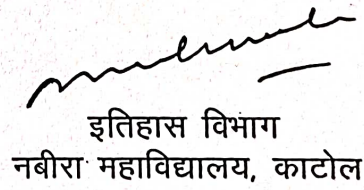 इतिहास विभाग
नबीरा महाविद्यालय, काटोल